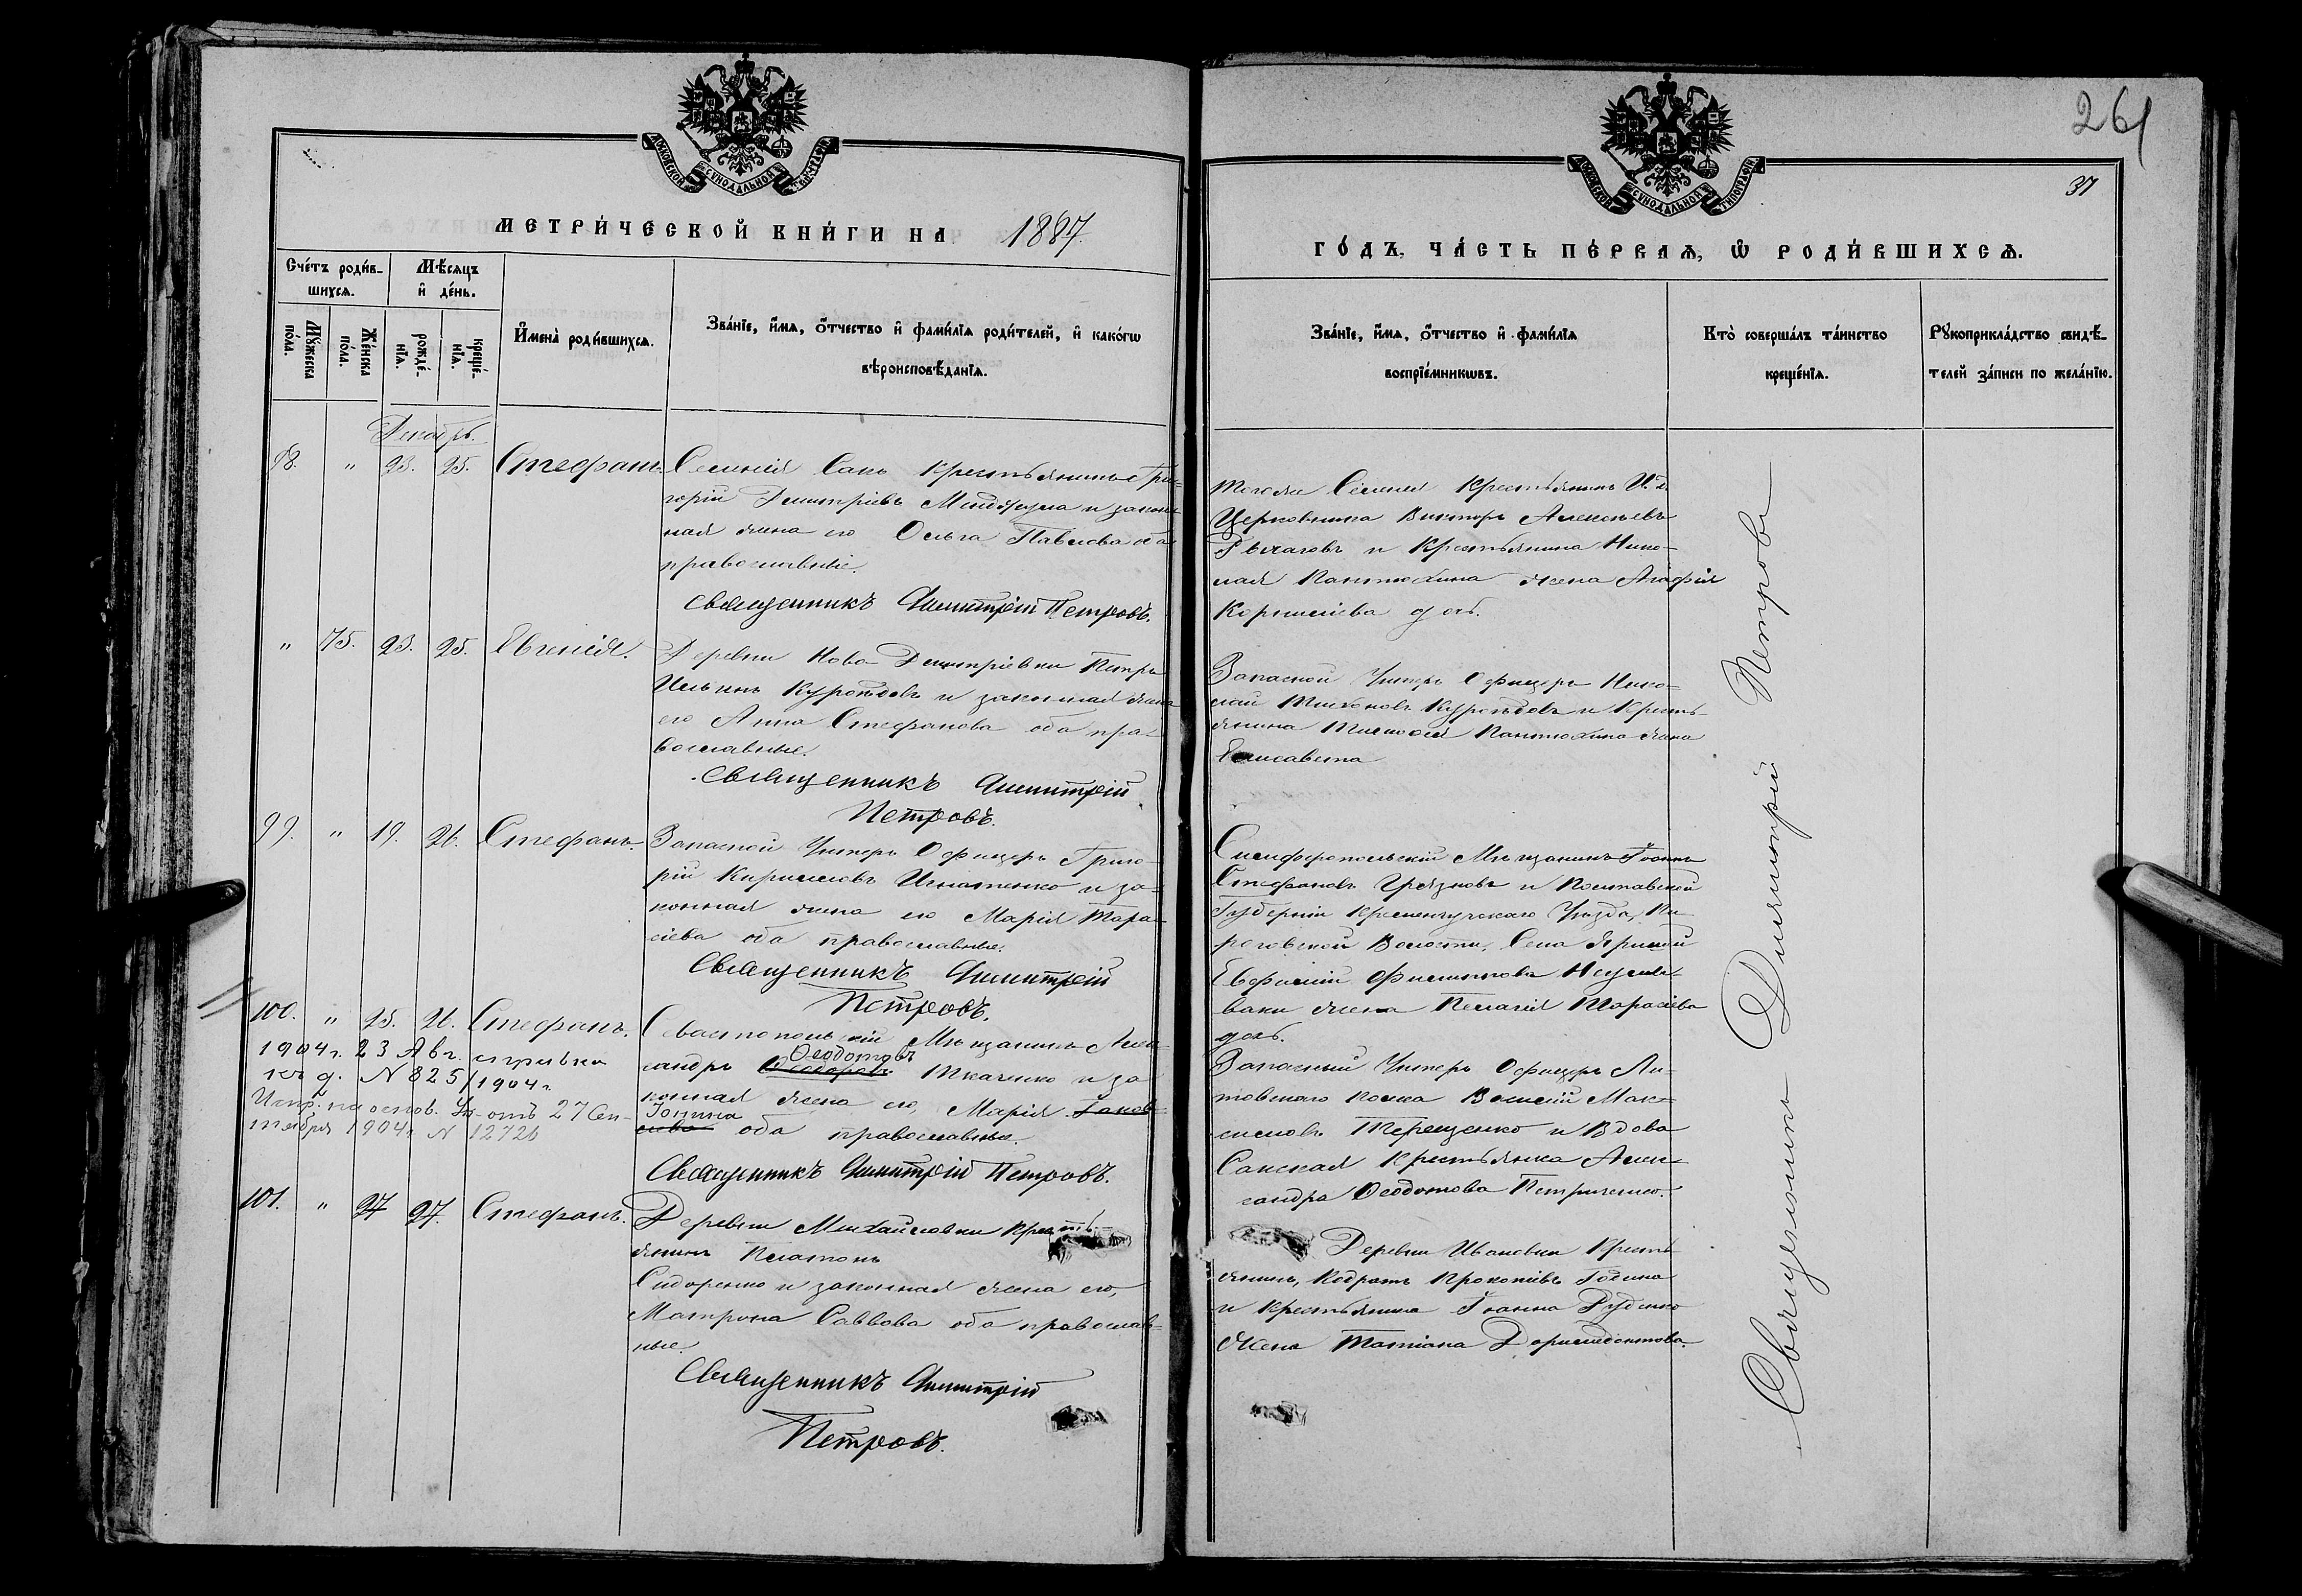 МОСКОВСКОЙ СУНОДАЛЬНОЙ ТИПОГРАФІИ
МЕТРИ́ЧЕСКОЙ КНИ́ГИ НА 1887.
Сче́тъ роди́в-
шихсѧ.
Мѣ́сѧцъ
и҆ де́нь.
Мꙋ́жеска
по́ла.
Же́нска
по́ла.
рожде́-
нїѧ.
креще́-
нїѧ.
И҆мена̀ роди́вшихсѧ.
Зва́нїе, и҆́мѧ, ѻ҆́тчество и҆ фами́лїѧ роди́телей, и҆ како́гѡ
вѣроисповѣ́данїѧ.
Декабрь.
98. " 23. 25. Стефанъ.
Селенія Саки Крестьянинъ Гри-
горій Димитріевъ Миндрума и закон-
ная жена его Ольга Павлова оба
православные.
Священникъ Димитрій Петровъ.
" 75. 23. 25. Евгенія.
Деревни Ново-Димитріевки Петръ
Ильинъ Куроѣдовъ и законная жена
его Анна Стефанова оба пра-
вославные.
Священникъ Димитрій
Петровъ.
99. " 19. 26. Стефанъ.
Запасной Унтеръ Офицеръ Григо-
рій Кирилловъ Игнатенко и за-
конная жена его Марія Тара-
сіева оба православные.
Священникъ Димитрій
Петровъ.
100. " 25. 26. Стефанъ.
Севастопольскій Мѣщанинъ Алек-
сандръ Ѳеодоровъ Ѳеодотовъ Ткаченко и за-
конная жена его, Марія Іаков-
лева Іонина оба православные.
Священникъ Димитрій Петровъ.
1904 г. 23 Авг. справка
къ д. N 825/1904 г.
Испр. на основ. Ук. отъ 27 Сен-
тября 1904 г. N 12726
101. " 27 27. Стефанъ.
Деревни Михайловки Кресть-
янинъ Платонъ
Сидоренко и законная жена его,
Матрона Саввова оба православ-
ные.
Священникъ Димитрій
Петровъ.
261
МОСКОВСКОЙ СУНОДАЛЬНОЙ ТИПОГРАФІИ
37
ГО́ДЪ, ЧА́СТЬ ПЕ́РВАѦ, Ѡ҆ РОДИ́ВШИХСѦ.
Зва́нїе, и҆́мѧ, ѻ҆́тчество и҆ фами́лїѧ
воспрїе́мникѡвъ.
Кто̀ соверша́лъ та́инство
креще́нїѧ.
Рꙋкоприкла́дство свидѣ́-
телей за́писи по жела́нїю.
Того же Селенія Крестьянинъ И. д.
Церковника Викторъ Алексѣевъ
Рычаговъ и Крестьянина Нико-
лая Пантюхина жена Агафія
Корнилиева дочь.
Запасной Унтеръ Офицеръ Нико-
лай Тихоновъ Куроѣдовъ и Кресть-
янина Тимофея Пантюхина жена
Елисавета
Симферопольскій Мѣщанинъ Іоаннъ
Стефановъ Грязновъ и Полтавской
Губерніи Кременчугскаго Уѣзда, Пи-
роговской Волости, Села
Евфимій Филиппова
жена Пелагія Тарасіева
дочь.
Запасный Унтеръ Офицеръ Ли-
товскаго полка Василій Мак-
симовъ Терещенко и Вдова
Сакская Крестьянка Алек-
сандра Ѳеодотова Петриченко.
Деревни Ивановки Кресть-
янинъ, Кодратъ Прокопіевъ Година
и Крестьянина Іоанна Руденко
жена Татіана Доримедонтова.
Священникъ Димитрій Петровъ